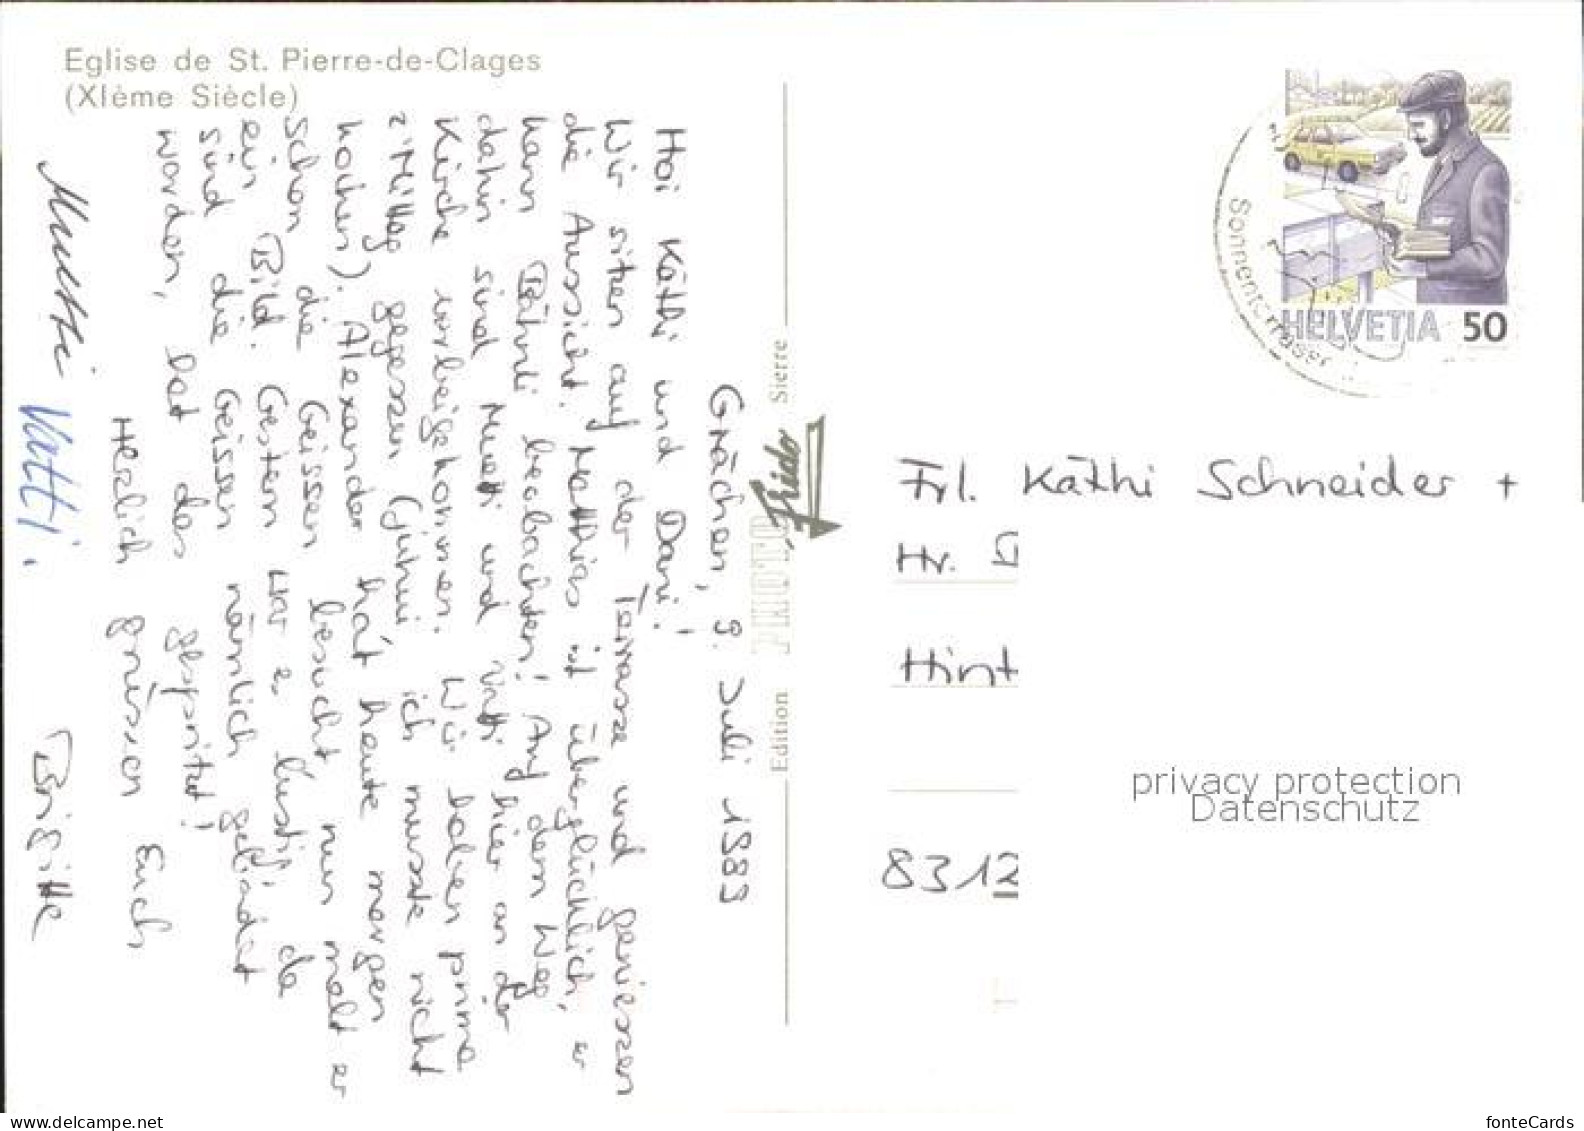 Eglise de St. Pierre-de-Clages
(XIème Siècle)
Grächen, 9. Juli 1989
Hoi Käthi und Dani!
Wir sitzen auf der Terrasse und geniessen
die Aussicht. Matthias ist überglücklich, er
kann Bähnli beobachten! Auf dem Weg
dahin sind Muetti und Vatti hier an der
Kirche vorbeigekommen. Wir haben prima
z'Mittag gegessen (juhui ich musste nicht
kochen). Alexander hät heute morgen
schon die Geissen besucht, nun malt er
ein Bild. Gestern war es lustig, da
sind die Geissen nämlich gebadet
worden, het das gspritzt!
Herzlich grüssen Euch
Muetti Vatti. Brigitte
Edition PHOTO Frido Sierre
Sonnenterrasse
HELVETIA 50
Frl. Käthi Schneider +
Hr.
Hint
8312
privacy protection
Datenschutz
delcampe.net
fonteCards